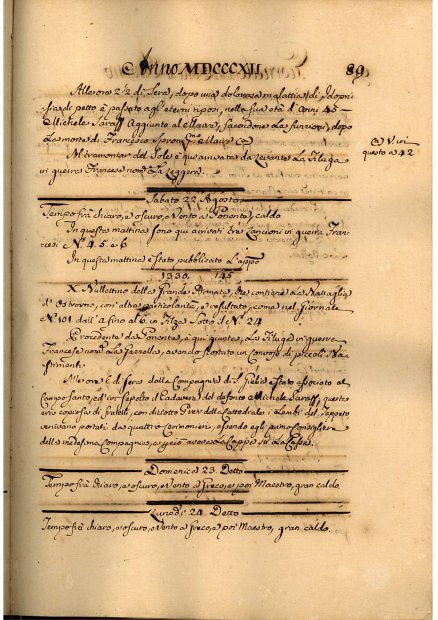 Anno MDCCCXII. 89
Alle ore 2 1/2 di sera, dopo una dolorosa malattia di Idropi-
sia di petto è passato agl'eterni riposi, nella sua età d'anni 45
Michele Saraff Aggiunto al Maire, facendone La funzione, dopo
La morte di Francesco Maire @
@ V. in
questo a 42
Al tramontar del Sole è qui arrivata da Levante La Filuga
in guerra Francese nom.ta La Leggera.
Sabato 22 Agosto
Tempo frà chiaro, e oscuro, e Vento a Ponente, caldo
In questa mattina sono qui arrivati trè Cannoni in guerra Fran-
cesi N.° 4. 5. e 6
In questa mattina è stato pubblicato L'app.o
1330. 145
X. Bullettino della Grande Armata, che contiene La Battaglia
d'Ostrovno, con altre particolarità, e resultato, come nel Giornale
N.° 101 dall' a fino al b. in Filza Sotto di N.° 24
Procedente da Ponente, è qui giunta, La Filuga in guerra
Francese nom.ta La Gazzella, avendo scortato un Convojo di piccoli Ba-
stimenti
Alle ore di sera dalla Compagnia di S. è stato associato al
Campo Santo, ed ivi sepolto il Cadavere del defonto Michele Saraff, questo
era copioso di fratelli, con diciotto Preti della Cattedrale, i Lembi del Tappeto
venivano portati da quattro Cerimonieri, essendo egli primo Consigliere
della medesima Compagnia, e perciò aveva La Cappa sù La Cassa.
Domenica 23. Detto
Tempo frà chiaro, e oscuro, e Vento a Greco, e poi Maestro, gran caldo.
Lunedì 24. Detto
Tempo frà chiaro, e oscuro, e Vento a Greco, e poi Maestro, gran caldo.